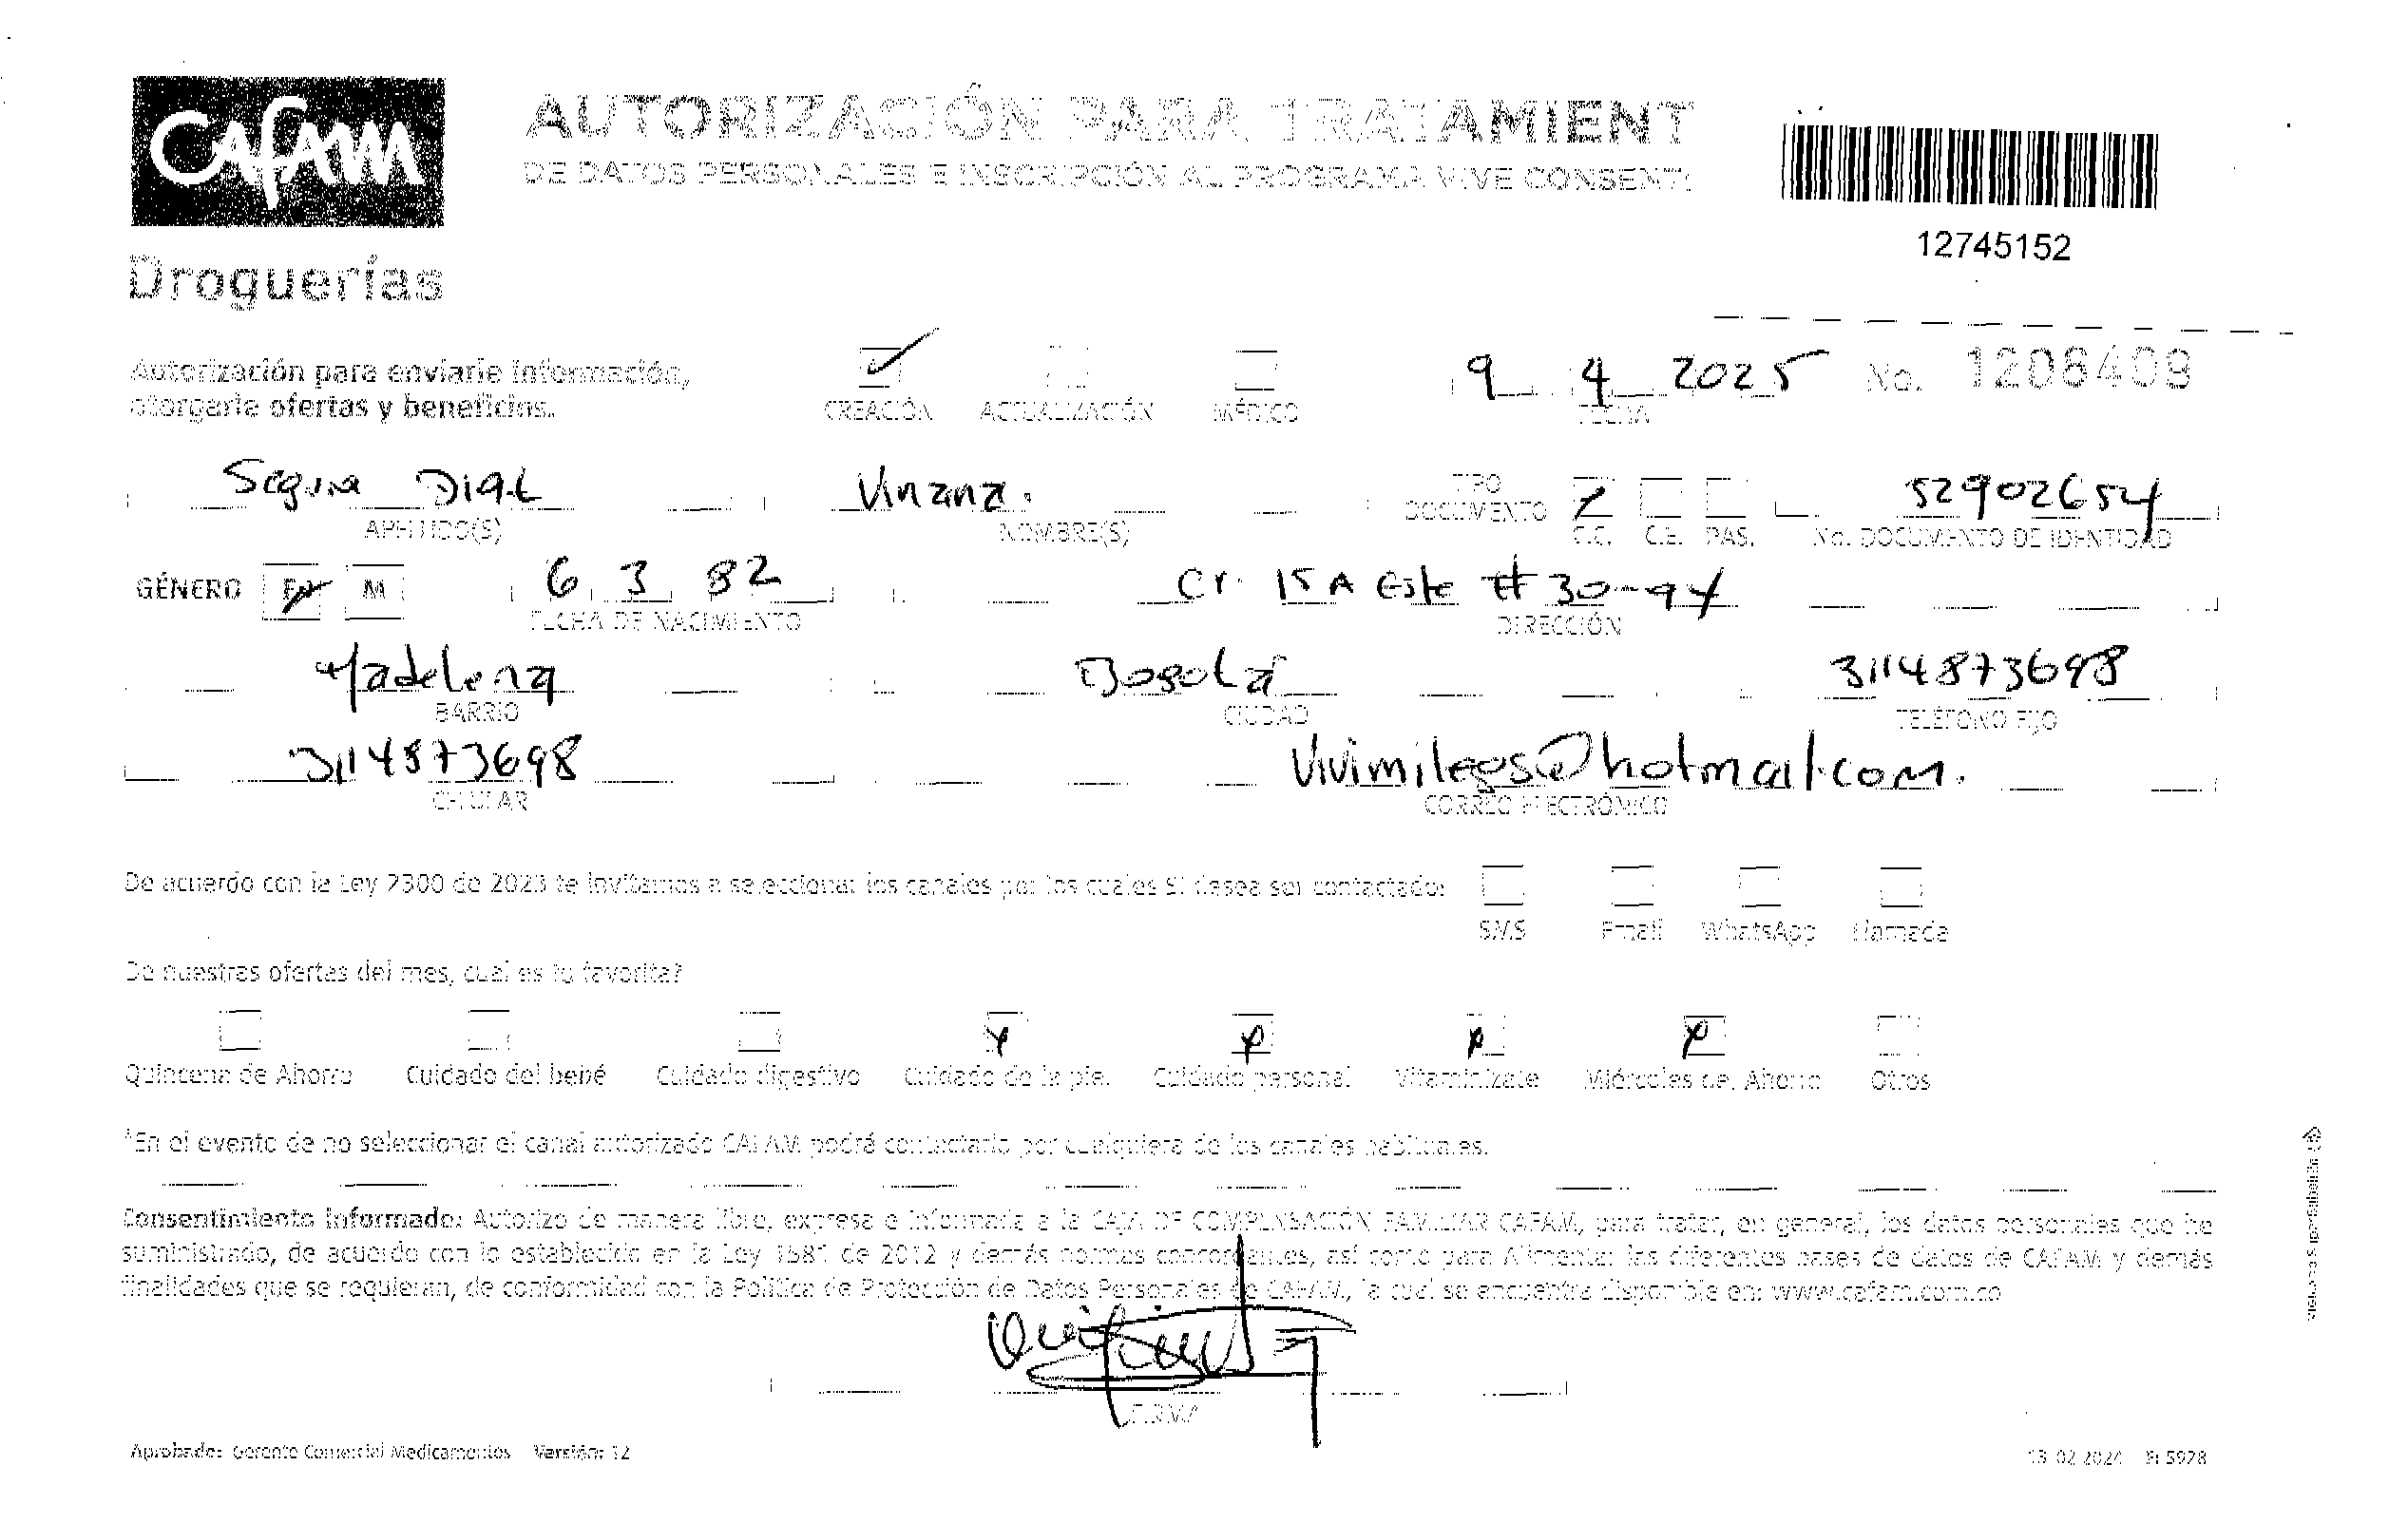 Cafam
AUTORIZACIÓN PARA TRATAMIENT
DE DATOS PERSONALES E INSCRIPCIÓN AL PROGRAMA VIVE CONSENTI
12745152
Droguerías
Autorización para enviarle información,
otorgarle ofertas y beneficios.
CREACIÓN ACTUALIZACIÓN MÉDICO
9 4 2025
FECHA
No. 1206409
Segura Diaz
APELLIDO(S)
Viviana.
NOMBRE(S)
TIPO
DOCUMENTO
C.C. C.E. PAS.
52902654
No. DOCUMENTO DE IDENTIDAD
GÉNERO F M
6 3 82
FECHA DE NACIMIENTO
Cr. 15 A Este # 30-94
DIRECCIÓN
Madelena
BARRIO
Bogotá
CIUDAD
3114873698
TELÉFONO FIJO
3114873698
CELULAR
Vivimilegos@hotmail.com.
CORREO ELECTRÓNICO
De acuerdo con la Ley 2300 de 2023 te invitamos a seleccionar los canales por los cuales SI desea ser contactado:
SMS Email WhatsApp Llamada
De nuestras ofertas del mes, cual es tu favorita?
Quincena de Ahorro Cuidado del bebé Cuidado digestivo Cuidado de la piel Cuidado personal Vitaminízate Miércoles del Ahorro Otros
*En el evento de no seleccionar el canal autorizado CAFAM podrá contactarlo por cualquiera de los canales habituales.
Consentimiento informado: Autorizo de manera libre, expresa e informada a la CAJA DE COMPENSACIÓN FAMILIAR CAFAM, para tratar, en general, los datos personales que he
suministrado, de acuerdo con lo establecido en la Ley 1581 de 2012 y demás normas concordantes, así como para Alimentar las diferentes bases de datos de CAFAM y demás
finalidades que se requieran, de conformidad con la Política de Protección de Datos Personales de CAFAM, la cual se encuentra disponible en: www.cafam.com.co
FIRMA
Aprobado: Gerente Comercial Medicamentos Versión: 12
13 02 2024 F: 5928